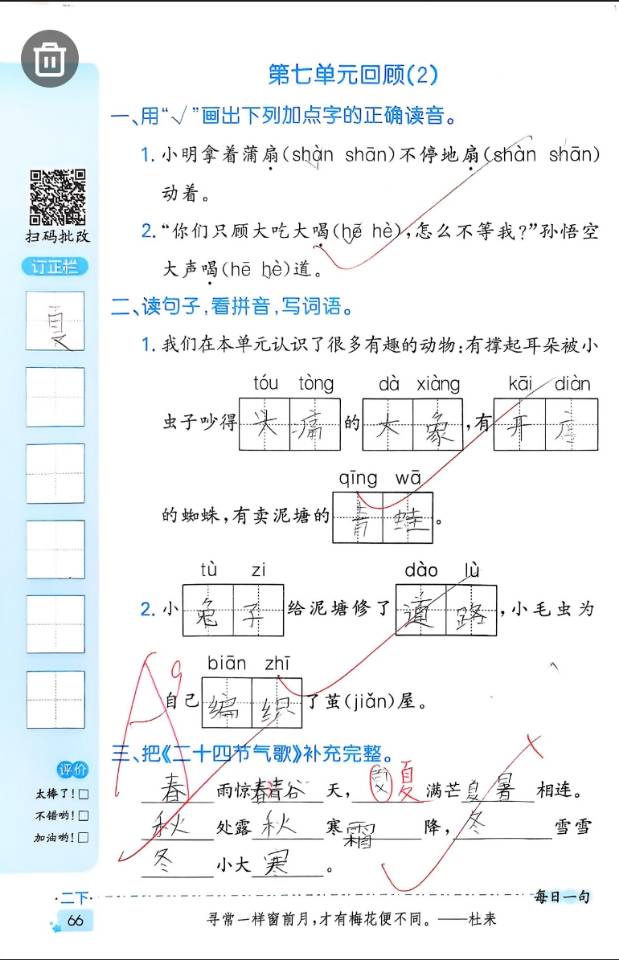 第七单元回顾(2)
一、用“√”画出下列加点字的正确读音。
1. 小明拿着蒲扇(shàn shān)不停地扇(shàn shān)
动着。
2.“你们只顾大吃大喝(hē hè),怎么不等我?”孙悟空
大声喝(hē hè)道。
扫码批改
订正栏
夏
二、读句子,看拼音,写词语。
1. 我们在本单元认识了很多有趣的动物:有撑起耳朵被小
tóu tòng dà xiàng kāi diàn
虫子吵得 头痛 的 大象 ,有 开店
qīng wā
的蜘蛛,有卖泥塘的 青蛙 。
tù zi dào lù
2. 小 兔子 给泥塘修了 道路 ,小毛虫为
biān zhī
自己 编织 了茧(jiǎn)屋。
A
三、把《二十四节气歌》补充完整。
春 雨惊春清谷 天, 夏 满芒夏暑 相连。
秋 处露 秋 寒霜 降, 冬 雪雪
冬 小大 寒 。
评价
太棒了!□
不错哟!□
加油哟!□
·二下·
66
每日一句
寻常一样窗前月,才有梅花便不同。——杜耒